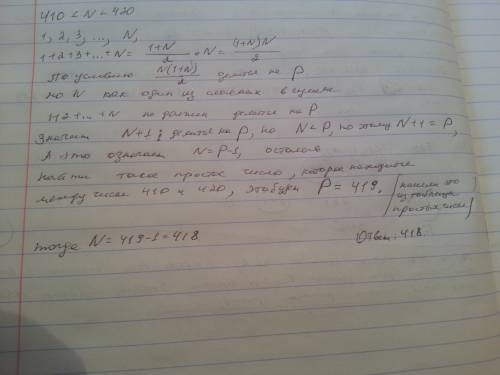 410 < N < 420
1, 2, 3, ..., N,
1+2+3+...+N = (1+N)/2 • N = (1+N)N/2
По условию N(1+N)/2 делится на P
но N как один из слагаемых в сумме
1+2+...+N не должен делится на P
Значит N+1 делится на P, но N<P, по этому N+1 = P,
А это означает N=P-1, осталось
найти такое простое число, которое находится
между числа 410 и 420, это будет P = 419, (нашли это
из таблицы
простых чисел)
тогда N = 419-1 = 418
Ответ: 418.